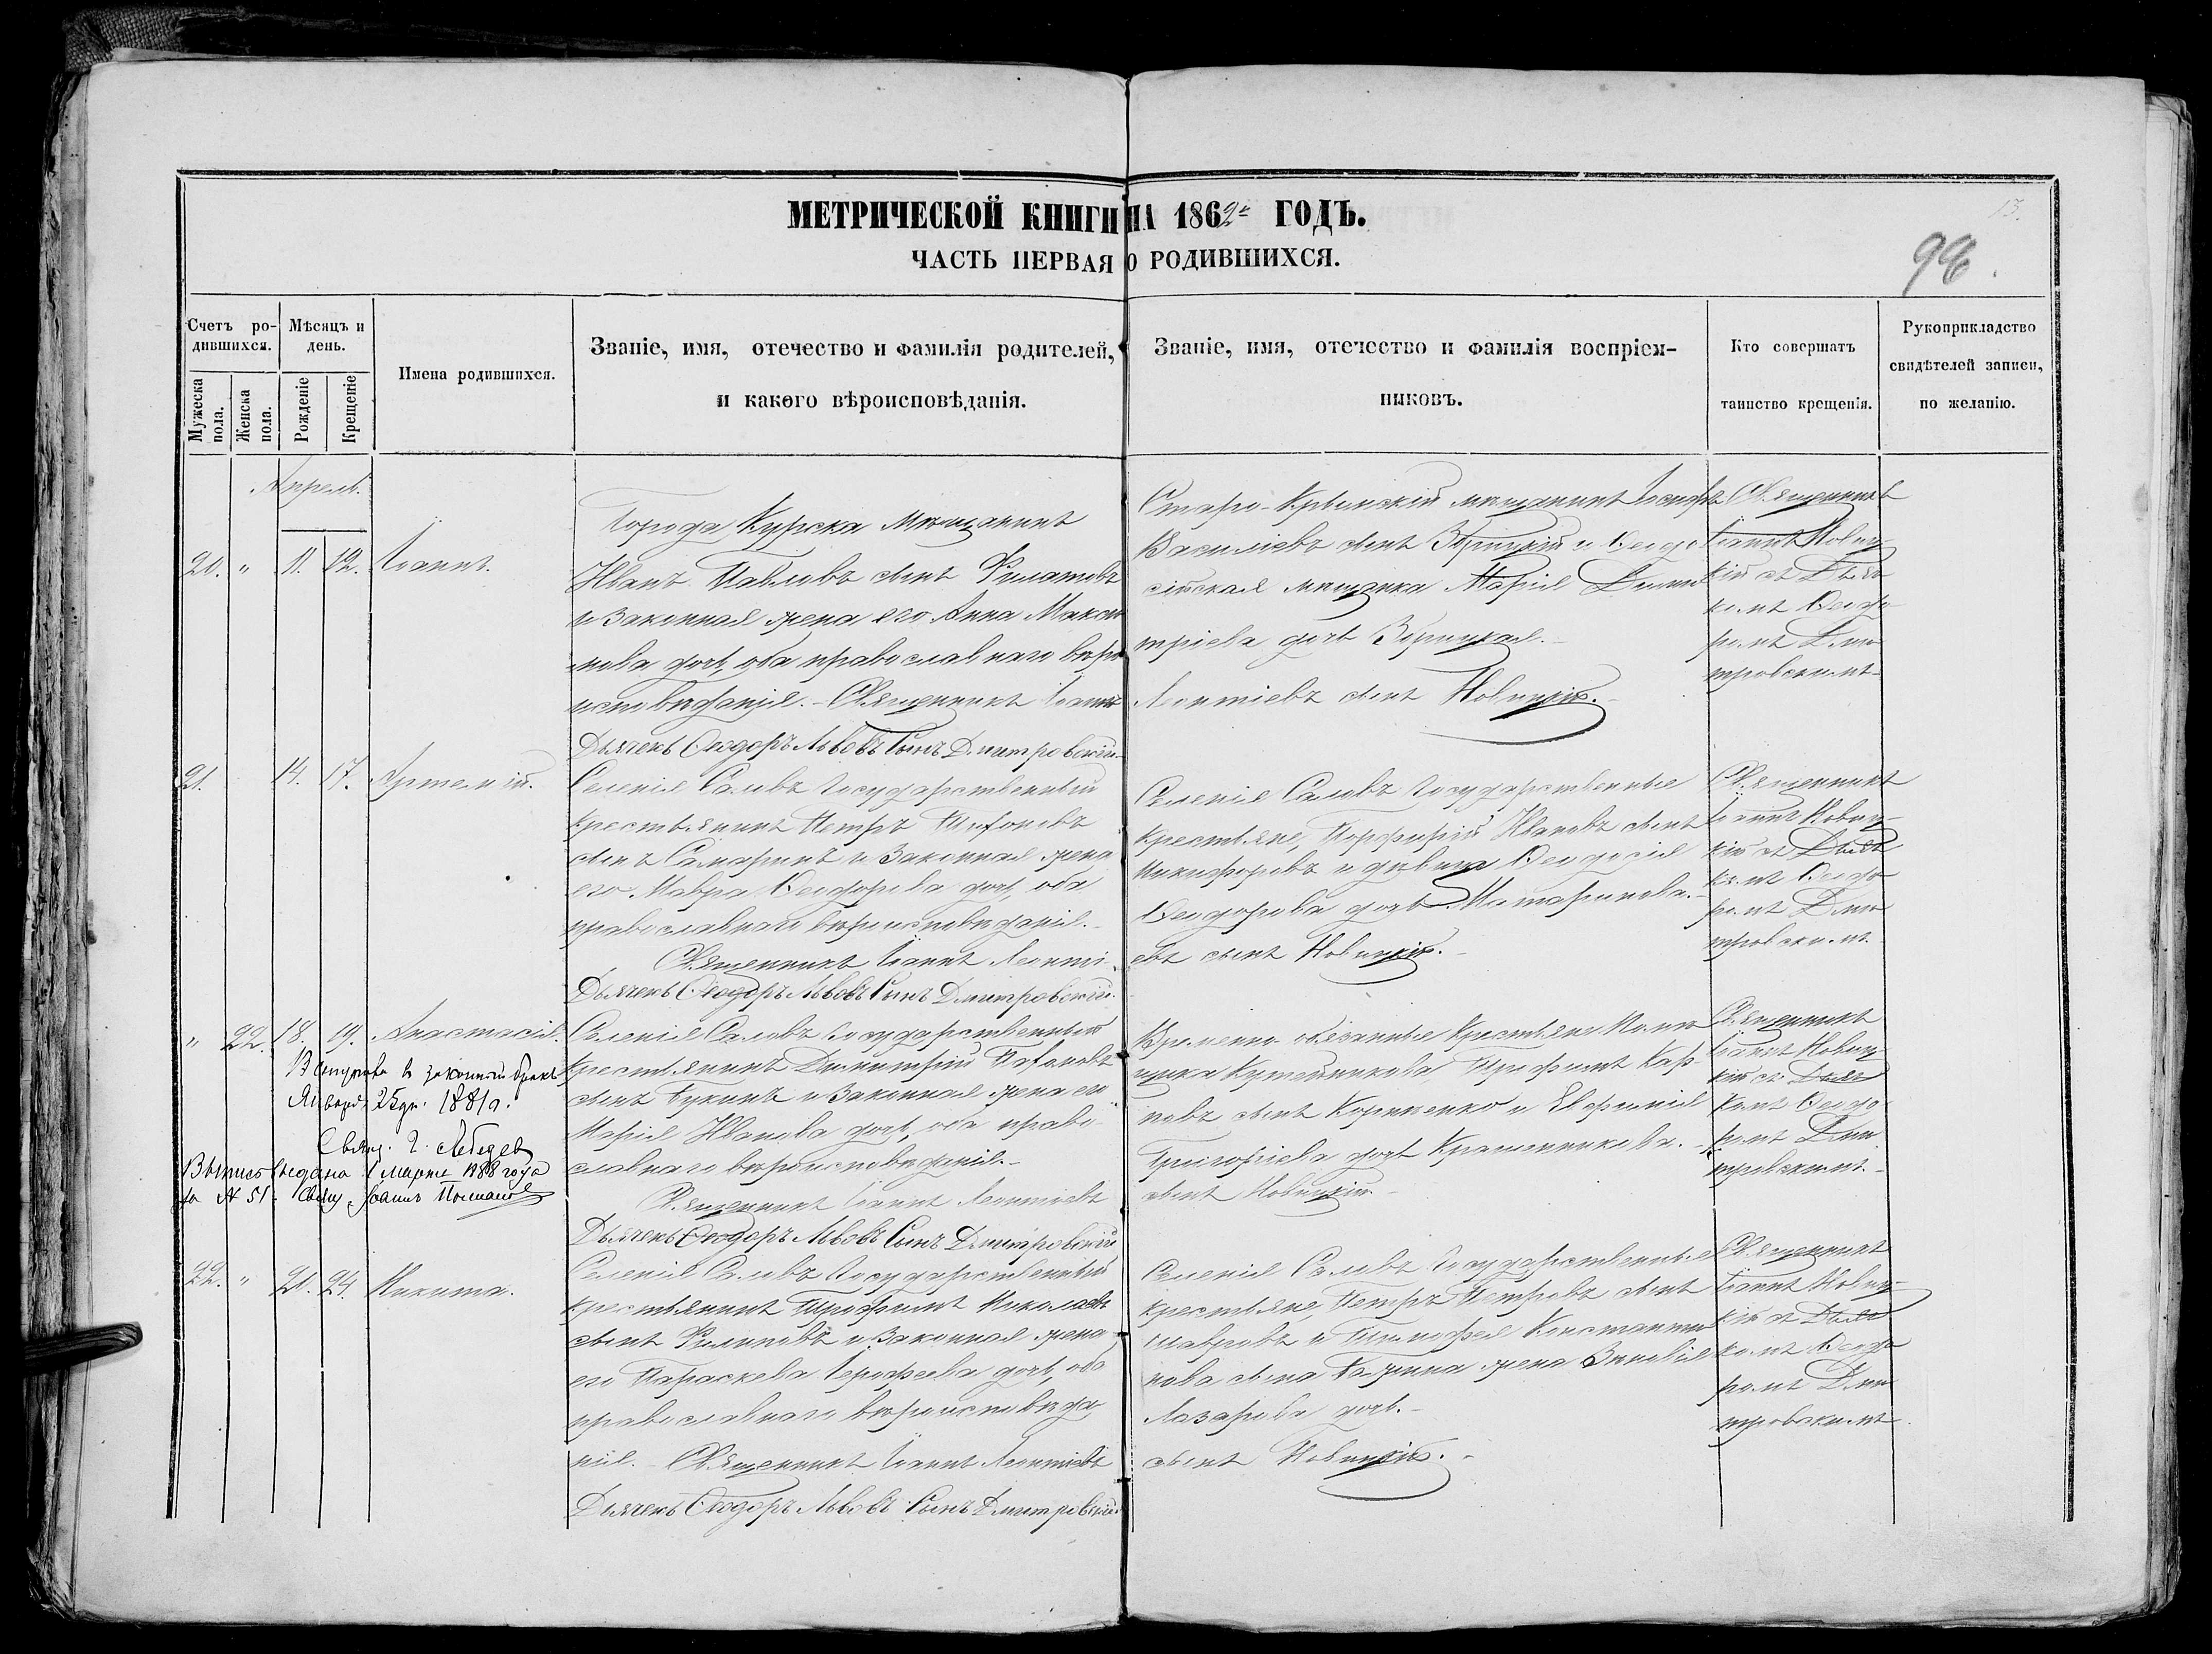 МЕТРИЧЕСКОЙ КНИГИ НА 1862й ГОДЪ.
ЧАСТЬ ПЕРВАЯ О РОДИВШИХСЯ.
13.
Счетъ ро-
дившихся.
Мужеска пола.
Женска пола.
Мѣсяцъ и
день.
Рожденіе
Крещеніе
Имена родившихся.
Званіе, имя, отечество и фамилія родителей,
и какого вѣроисповѣданія.
Званіе, имя, отечество и фамилія воспріем-
никовъ.
Кто совершалъ
таинство крещенія.
Рукоприкладство
свидѣтелей записи,
по желанію.
Апрель.
20. " 11. 12. Іоаннъ.
Города Курска Мѣщанинъ
Иванъ Павловъ сынъ Филатовъ
и законная жена его Анна Макси
мова дочь, оба православнаго вѣро
исповѣданія. - Священникъ Іоаннъ
Дьячекъ Ѳеодоръ Львовъ Сынъ Дмитровскій
Старо-Крымскій мѣщанинъ Іосифъ
Василіевъ сынъ и Ѳеодо
сійская мѣщанка Марія Дими
тріева дочь
Леонтіевъ сынъ Новицкій.
Священникъ
Іоаннъ Новиц-
кій съ Дьяч
комъ Ѳеодо
ромъ Дми
тровскимъ
21. 14. 17. Артемій.
Селенія Саловъ Государственный
крестьянинъ Петръ Тихоновъ
сынъ Самаринъ и законная жена
его Мавра Ѳеодорова дочь, оба
православнаго вѣроисповѣданія.
Священникъ Іоаннъ Леонті-
Дьячекъ Ѳеодоръ Львовъ Сынъ Дмитровскій.
Селенія Саловъ Государственные
крестьяне, Порфирій Ивановъ сынъ
Никифоровъ и дѣвица Ѳеодосія
Ѳеодорова дочь
евъ сынъ Новицкій.
Священникъ
Іоаннъ Новиц-
кій съ Дьяч
комъ Ѳеодо
ромъ Дми
тровскимъ.
" 22. 18. 19. Анастасія.
Вступила въ законный бракъ
Января 25 дн. 1881 г.
Свящ. Лебедев
Выпись выдана 1 марта 1888 года
за № 51. Свящ Іоаннъ
Селенія Саловъ Государственный
крестьянинъ Димитрій
сынъ Букинъ и законная жена его
Марія Иванова дочь, оба право-
славнаго вѣроисповѣданія.
Священникъ Іоаннъ Леонтіевъ
Дьячекъ Ѳеодоръ Львовъ Сынъ Дмитровскій
Временно обязанные Крестьяне Помѣ
щика Трофимъ Кар
повъ сынъ и Евфимія
Григоріева дочь
сынъ Новицкій.
Священникъ
Іоаннъ Новиц
кій съ Дьяч
комъ Ѳеодо
ромъ Дми
тровскимъ.
22. " 21. 24. Никита.
Селенія Саловъ Государственный
крестьянинъ Трофимъ Николаевъ
сынъ Филиповъ и законная жена
его Параскева Ерофеева дочь, оба
православнаго вѣроисповѣда
нія. - Священникъ Іоаннъ Леонтіевъ
Дьячекъ Ѳеодоръ Львовъ Сынъ Дмитровскій
Селенія Саловъ Государственные
крестьяне, Петръ Петровъ сынъ
и Тимофея Константи
нова сына жена Зиновія
Лазарева дочь.
сынъ Новицкій.
Священникъ
Іоаннъ Новиц-
кій съ Дьяч
комъ Ѳеодо
ромъ Дми
тровскимъ.